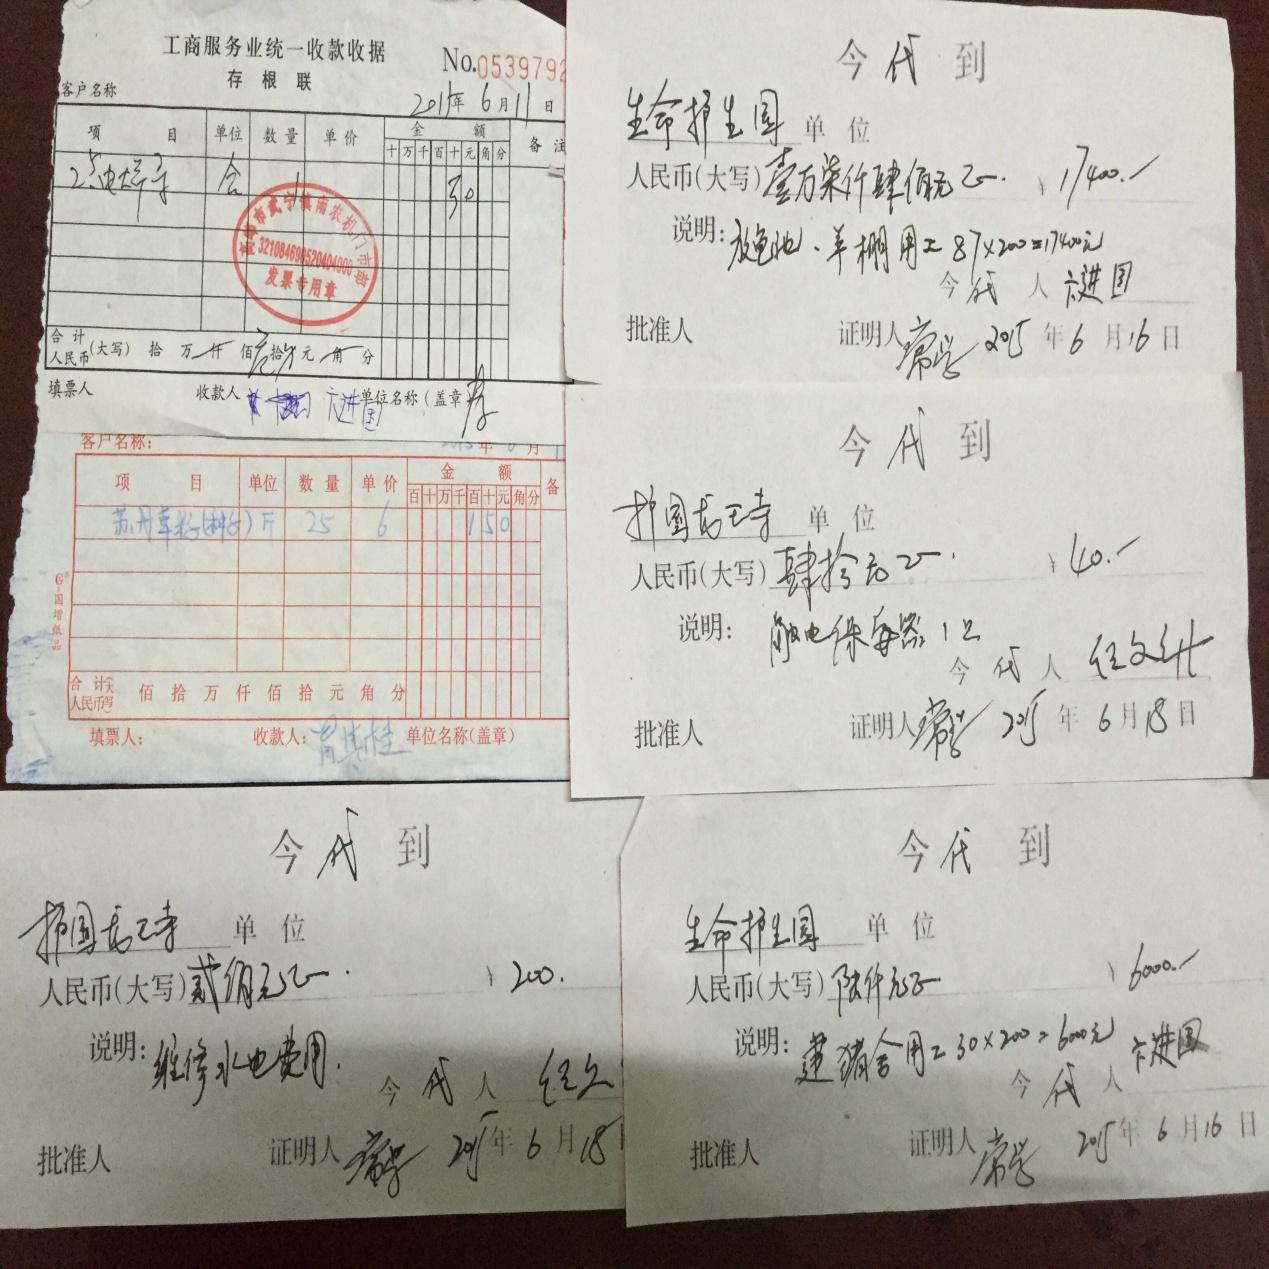 工商服务业统一收款收据
存 根 联
No.0539792
客户名称
2015年 6月11日
项 目 单位 数量 单价 金 额 备注
十万千百十元角分
台 1 30
高邮市武宁镇南农机门市部
321084690520404000
发票专用章
合计人民币(大写) 拾 万 仟 佰 拾 元 角 分
填票人 收款人 卞进国 单位名称(盖章
客户名称: 2015年6月1
项 目 单位 数量 单价 金 额 备
百十万千百十元角分
苏丹草籽(种子) 斤 25 6 150
合计人民币(大写) 佰 拾 万 仟 佰 拾 元 角 分
填票人: 收款人: 单位名称(盖章)
国增纸品
今代到
生命护生园 单 位
人民币(大写)壹万柒仟肆佰元正. ¥17400.-
说明: 放龟池、羊棚用工87×200=17400元
今代人 卞进国
批准人 证明人 常学 2015年6月16日
今代到
护国龙王寺 单 位
人民币(大写)肆拾元正. ¥40.-
说明: 触电保安器1只
今代人 任文升
批准人 证明人 常学 2015年6月18日
今代到
护国龙王寺 单 位
人民币(大写)贰佰元正. ¥200.
说明: 维修水电费用.
今代人 任文
批准人 证明人 常学 2015年6月18
今代到
生命护生园 单 位
人民币(大写)陆仟元正 ¥6000.-
说明: 建猪舍用工30×200=6000元
今代人 卞进国
批准人 证明人 常学 2015年6月16日